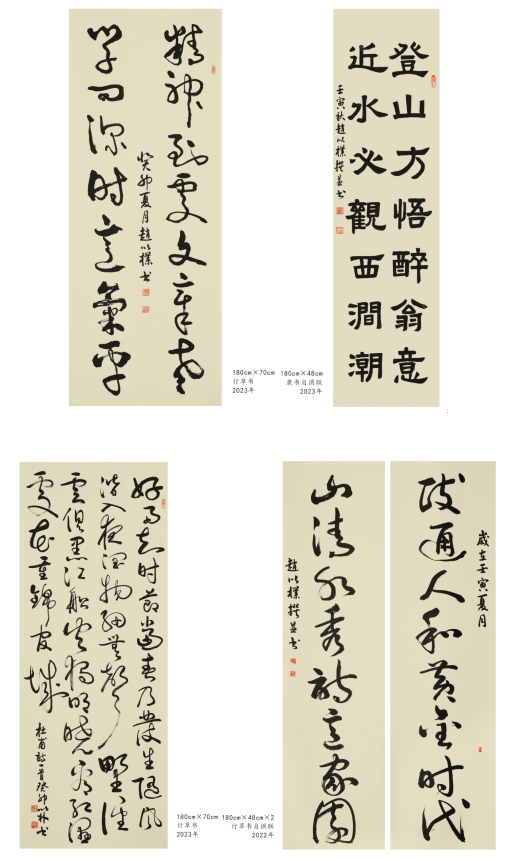 精神到处文章老
学问深时意气平
癸卯夏月趙以樸书
180cm×70cm
行草书
2023年
登山方悟醉翁意
近水必觀西澗潮
壬寅秋趙以樸撰并书
180cm×48cm
隶书自撰联
2023年
好雨知时节當春乃發生随风
潜入夜润物细無声野径
雲俱黑江船火獨明晓看红湿
处花重錦官城
杜甫诗一首癸卯以朴书
180cm×70cm
行草书
2023年
歲在壬寅夏月
政通人和黄金时代
山清水秀诗意家園
趙以樸撰并书
180cm×48cm×2
行草书自撰联
2022年